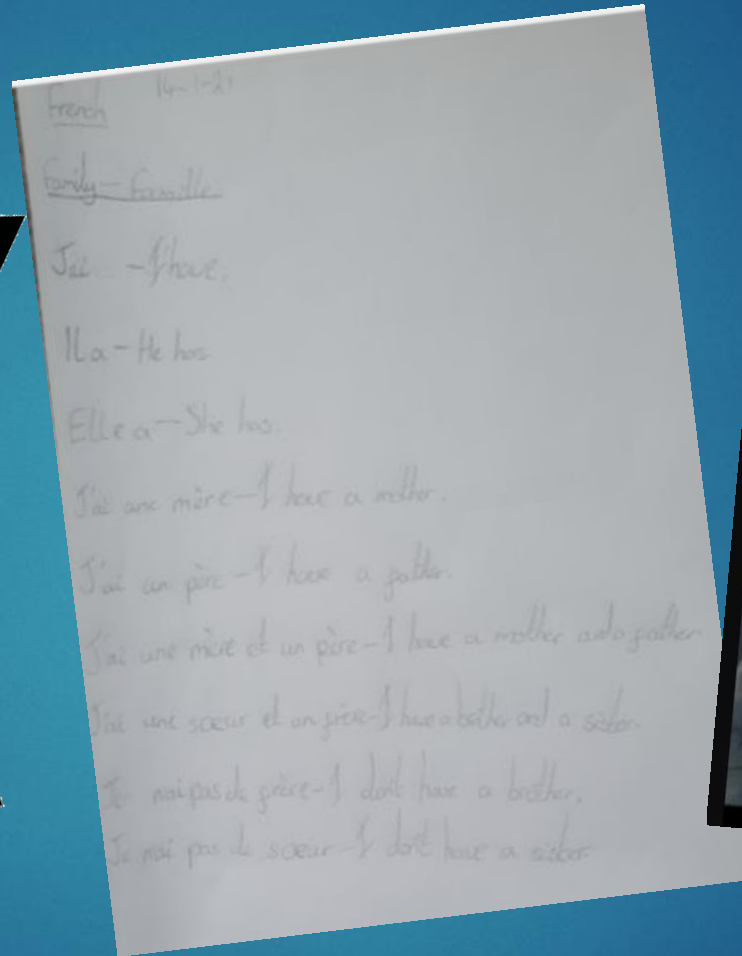 French 14-1-21
Family - Famille
J'ai - I have.
Il a - He has
Elle a - She has.
J'ai une mère - I have a mother.
J'ai un père - I have a father.
J'ai une mère et un père - I have a mother and a father
J'ai une sœur et un frère - I have a brother and a sister.
Je n'ai pas de frère - I don't have a brother.
Je n'ai pas de sœur - I don't have a sister